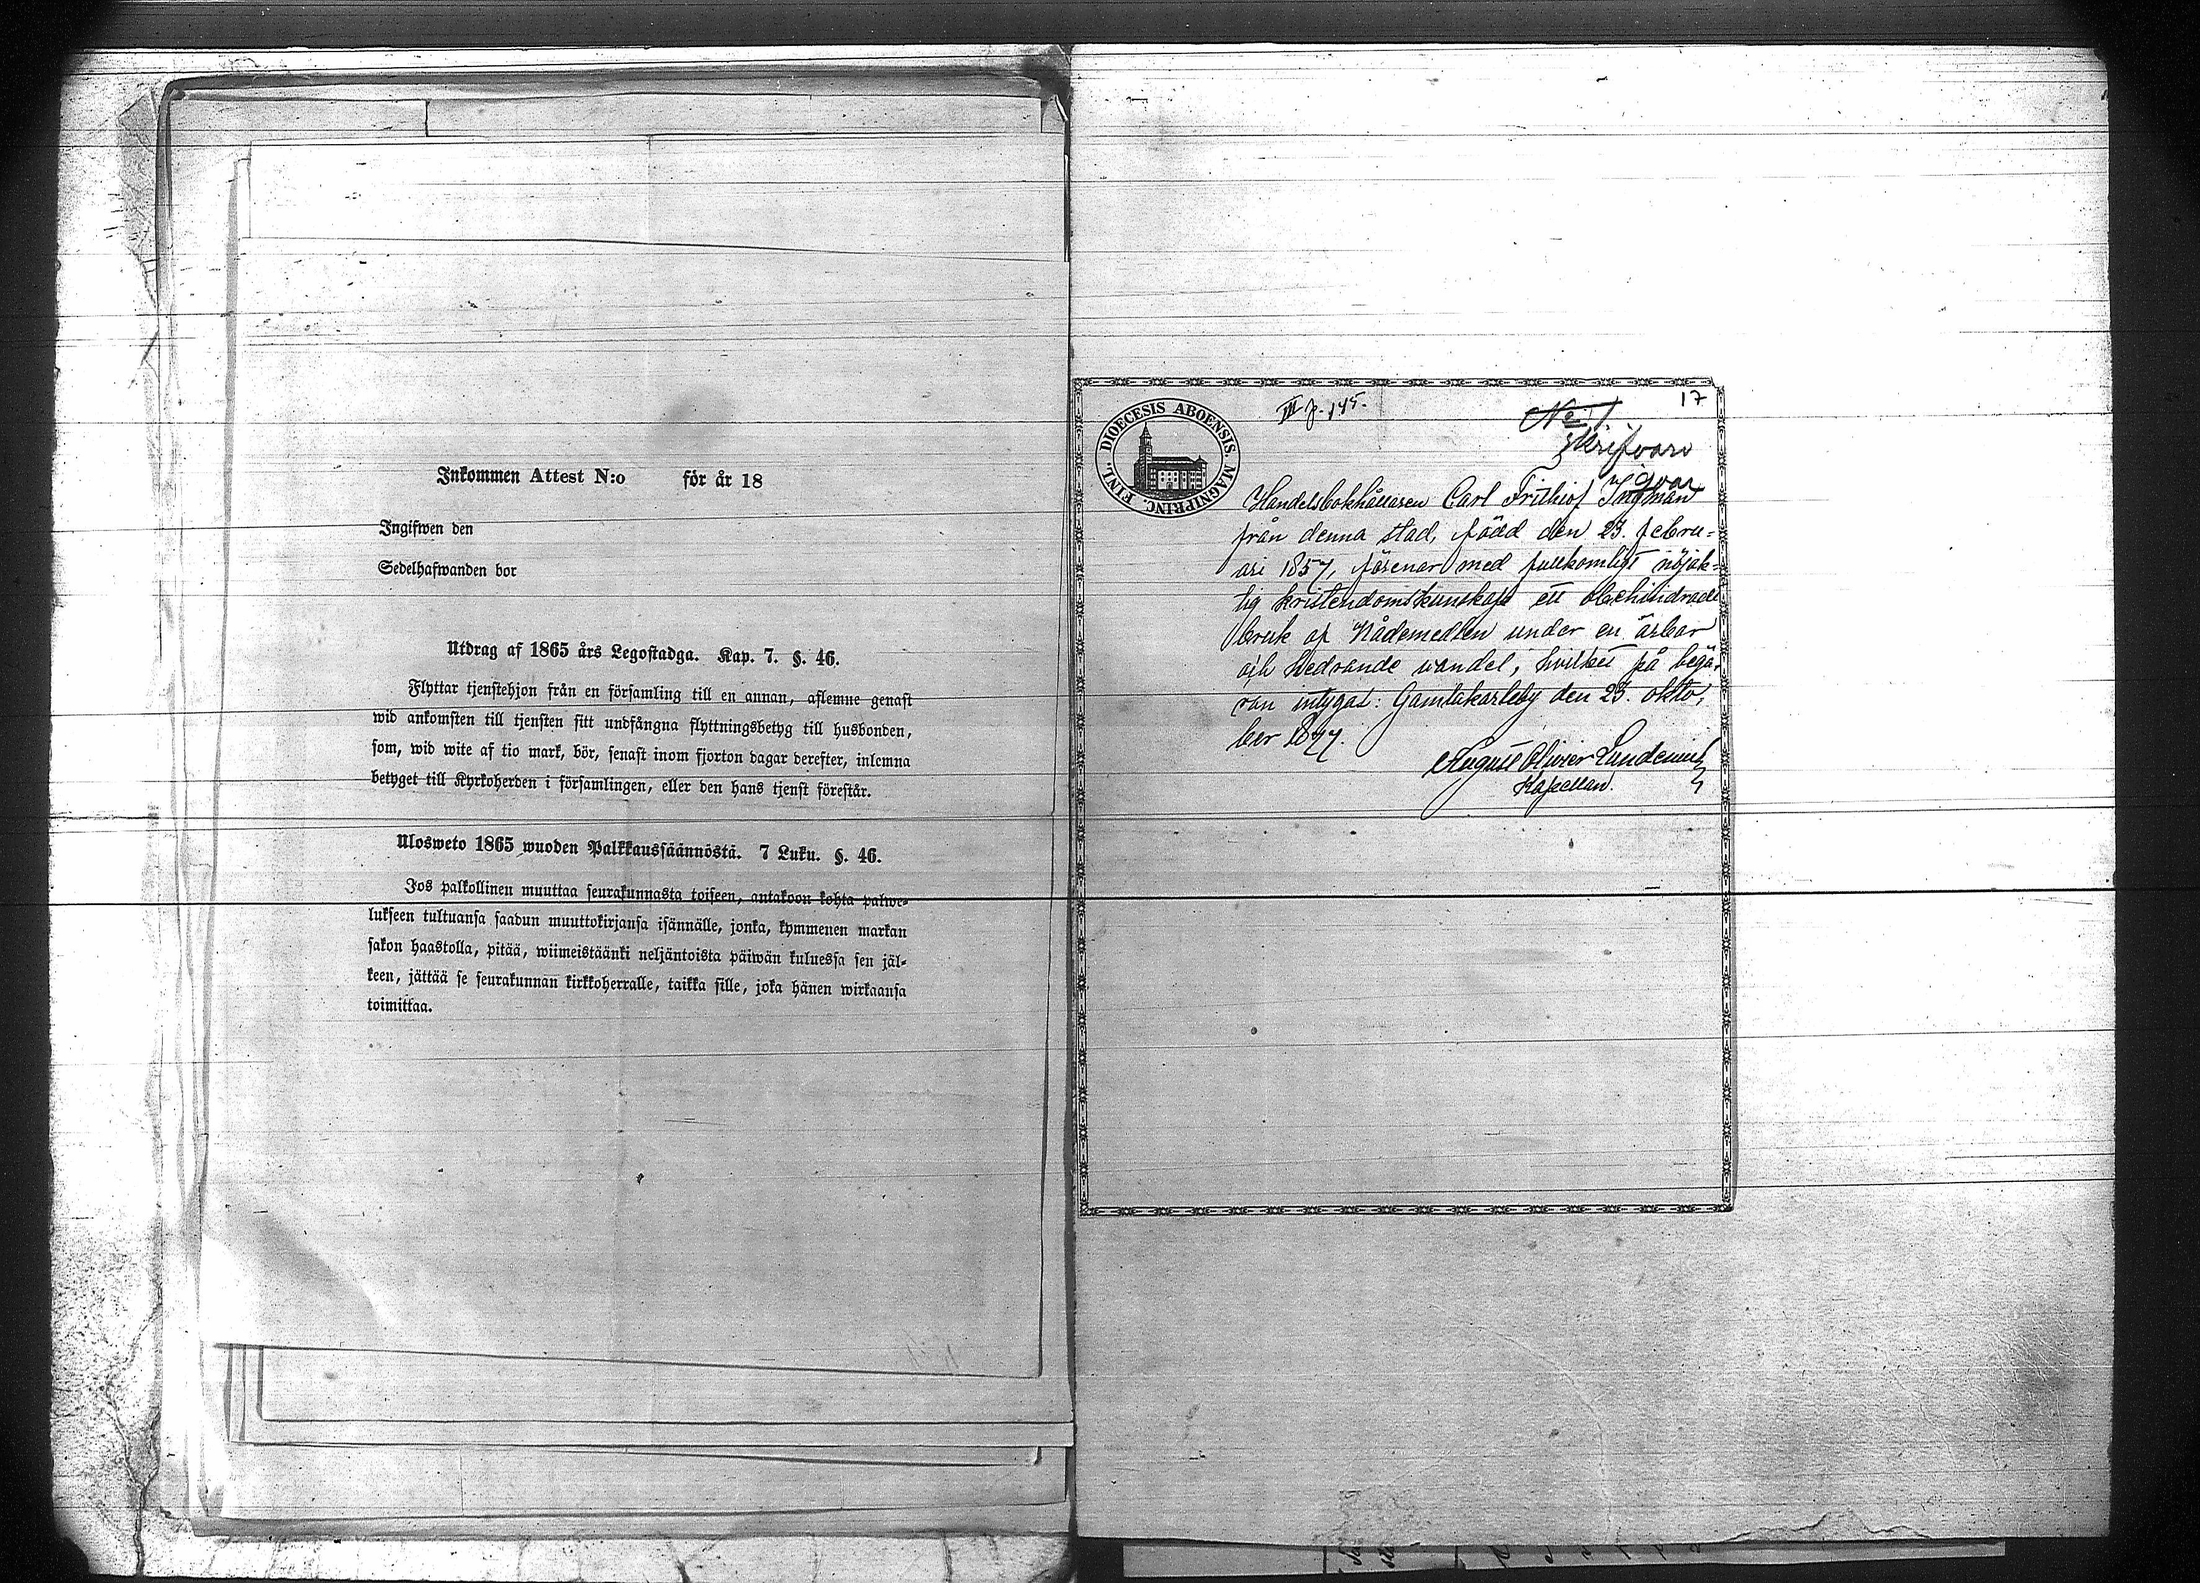 Inkommen Attest N:o för år 18
Ingifwen den
Sedelhafwanden bor
Utdrag af 1865 års Legostadga. Kap. 7. §. 46.
Flyttar tjenstehjon från en församling till en annan, aflemne genast
wid ankomsten till tjensten sitt undfångna flyttningsbetyg till husbonden,
som, wid wite af tio mark, bör, senast inom fjorton dagar derefter, inlemna
betyget till Kyrkoherden i församlingen, eller den hans tjenst förestår.
Ulosweto 1865 wuoden Palkkaussäännöstä. 7 Luku. §. 46.
Jos palkollinen muuttaa seurakunnasta toiseen, antakoon kohta palwe-
lukseen tultuansa saadun muuttokirjansa isännälle, jonka, kymmenen markan
sakon haastolla, pitää, wiimeistäänki neljäntoista päiwän kuluessa sen jäl-
keen, jättää se seurakunnan kirkkoherralle, taikka sille, joka hänen wirkaansa
toimittaa.
17
III p. 145.
No 1
Skrifvare
FINL. DIOECESIS ABOENSIS. MAGNIPRINC.
Handelsbokhållaren Carl Frithiof Ingman
från denna stad, född den 23. febru-
ari 1857, förenar med fullkomligt nöjak-
tig kristendomskunskap ett obehindradt
bruk af Nådemedlen under en ärbar
och hedrande vandel; hvilket på begä-
ran intygas: Gamlakarleby den 23. okto-
ber 1877.
August Oliver Lundenius
Kapellan.